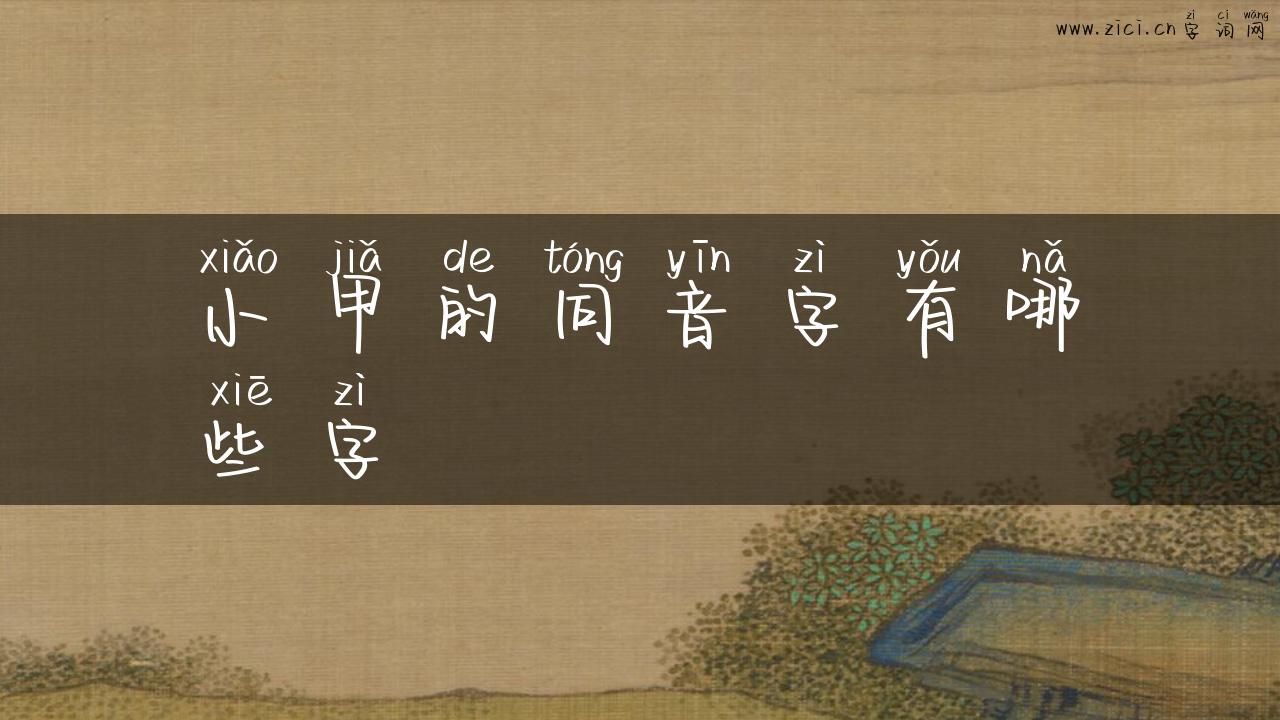 zì cí wǎng
www.zici.cn 字 词 网
xiǎo jiǎ de tóng yīn zì yǒu nǎ
小 甲 的 同 音 字 有 哪
xiē zì
些 字